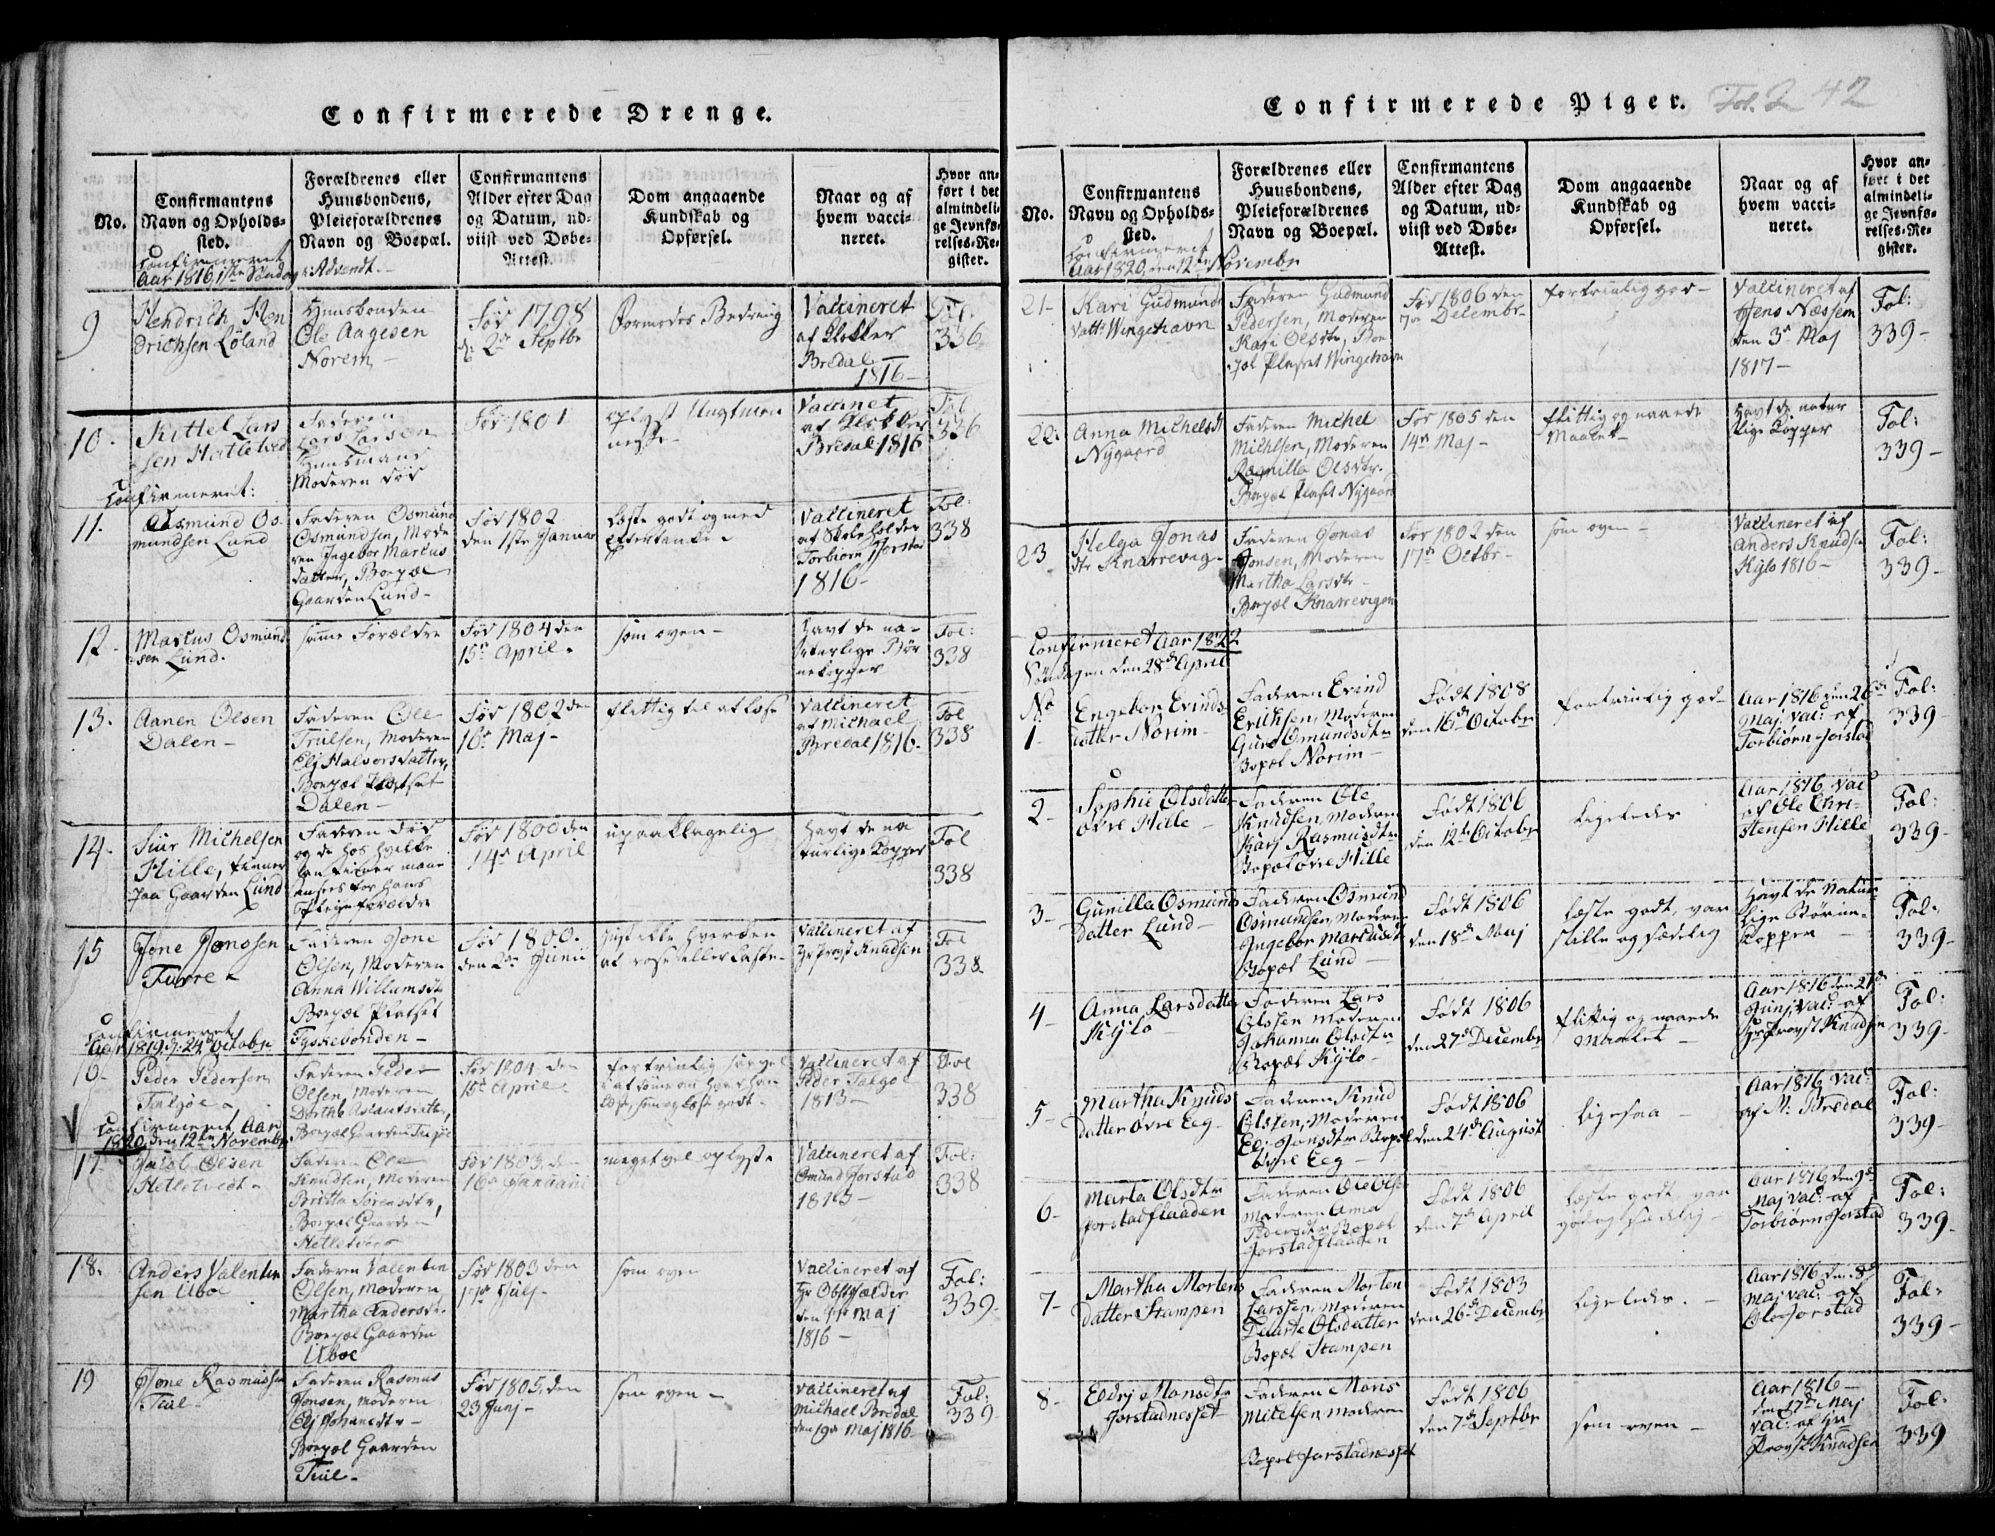 Confirmerede Drenge.
No.
Confirmantens
Navn og Opholds-
sted.
Forældrenes eller
Huusbondens,
Pleieforældrenes
Navn og Boepæl.
Confirmantens
Alder efter Dag
og Datum, ud-
viist ved Døbe-
Attest.
Dom angaaende
Kundskab og
Opførsel.
Naar og af
hvem vacci-
neret.
Hvor an-
ført i det
almindeli-
ge Jevnfø-
relses-Re-
gister.
Confirmeret
Aar 1816, 1ste Søndag i Advendt.
9
Hendrich Hen
drichsen Løland
Huusbonden
Ole Aagesen
Norem
Fød 1798
d: 2den Septbr
Formodes Bedring
Vaccineret
af Klokker
Bredal
1816
Fol.
336
10.
Kittel Lars
sen Hetletved
Faderen
Lars Larsen
Huusmand
Moderen død
Fød 1801
Vaccinet
af Klokker
Bredal 1816
Fol
336
Confirmeret:
11.
Aasmund Os-
mundsen Lund
Faderen Osmund
Osmundsen, Mode
ren Ingebor Marcus
datter, Boepæl
Gaarden Lund
Fød 1802
den 1ste Januar
Læste godt og med
Eftertanke
Vaccineret
af Skoleholder
Torbiørn Jorstad
1816
Fol:
338
12.
Marcus Osmund
sen Lund.
samme Forældre
Fød 1804 den
15de April.
som oven
Havt de na-
turlige Bør
nekopper
Fol:
338
13.
Aanen Olsen
Dalen
Faderen Ole
Trulsen, Moderen
Eli Halvorsdatter,
Boepæl Pladset
Dalen
Fød 1802 den
16de Maj
flittig til at læse
Vaccineret
af Michael
Bredal 1816.
Fol
338
14.
Siur Michelsen
Hille, tiener
paa Gaarden Lund
Faderen død
og de hos hvilke
han tiener maae
ansees for hans
Pleieforældre
Fød 1800 den
14de April
upaaklagelig
Havt de na
turlige Kopper
Fol
338
15
Jone Jonssen
Turre
Faderen Jone
Olsen, Moderen
Anna Willumsdtr
Boepæl Pladset
Tyskevonden
Fød 1800.
den 2den Junii
just ikke hverken
at rose eller laste
Vaccineret af
Hr Provst Knudsen
Fol
338
Confirmeret
Aar 1819, d. 24de Octobr
16
Peder Pedersen
Talgøe
Faderen Peder
Olsen, Moderen
Dorthe Aslaksdatter,
Boepæl Gaarden Talgøe
Fød 1804 den
15de April
Vaccineret af
Peder Talgøe
1813
Fol
338
Confirmeret Aar
1820, den 12te Novembr
17
Jacob Olsen
Hetletvedt
Faderen Ole
Knudsen, Moderen
Britta Sørensdtr,
Boepæl Gaarden
Hetletvedt
Fød 1803. den
16de Januarii
meget vel oplyst
Vaccineret af
Omund Jorstad
1813
Fol:
338
18.
Anders Valentin
sen Uboe
Faderen Valentin
Olsen, Moderen
Martha Andersdtr
Boepæl Gaarden
Uboe
Fød 1803 den
17de Julj
som oven
Vaccineret af
Hr Obstfælder
den 1ste Maj
1816
Fol:
339
19
Jone Rasmussen
Tuel
Faderen Rasmus
Jonsen, Moderen
Eli Johansdtr
Boepæl Gaarden
Tuel
Fød 1805, den
23 Junj
som oven
Vaccineret af
Michael Bredal
den 19de Maj 1816
Fol:
339
Confirmerede Piger.
Fol. 2 42
No.
Confirmantens
Navn og Opholds-
sted.
Forældrenes eller
Huusbondens,
Pleieforældrenes
Navn og Boepæl.
Confirmantens
Alder efter Dag
og Datum, ud-
viist ved Døbe-
Attest.
Dom angaaende
Kundskab og
Opførsel.
Naar og af
hvem vacci-
neret.
Hvor an-
ført i det
almindeli-
ge Jevnfø-
relses-Re-
gister.
Confirmeret
Aar 1820, den 12te Novembr
21
Kari Gudmunds
datt: Wingehavn
Faderen Gudmund
Pedersen, Moderen
Kari Olsdtr, Boe
pæl Pladset Wingehavn
Fød 1806 den
7de Decembr
fortrinlig god
Vaccineret af
Jens Næssem
den 3de Maj
1817
Fol:
339
22.
Anna Michelsdt
Nygaard
Faderen Michel
Michelsen, Moderen
Ragnilla Olsdtr.
Boepæl Pladset Nygaard
Fød 1805 den
14de Maj
flittig og naaede
Maalet
Havt de natur
lige Kopper
Fol:
339
23
Helga Jonas
dtr Knarrevig
Faderen Jonas
Jonsen, Moderen
Martha Larsdtr
Boepæl Knarrevigen
Fød 1802 den
17de Octbr
som oven
Vaccineret af
Anders Knudsen
Kylo 1816
Fol:
339
Confirmeret Aar 1822
Søndagen den 28de April
No
1
Engebor Evinds
datter Norim
Faderen Evind
Erichsen, Moderen
Guro Omundsdtr
Bopæl Norim
Født 1808
den 16de Octobr
fortrinlig god
Aar 1816 den 26de
Maj, Vac: af
Torbiørn Jorstad
Fol:
339
2
Sophie Olsdatter
Øvre Hille
Faderen Ole
Knudsen, Moderen
Karj Rasmusdtr
Bopæl Øvre Hille
Født 1806
den 12te Octobr
ligeledes
Aar 1816, Vac
af Ole Chri-
stensen Hille
Fol:
339
3
Gunilla Osmunds
datter Lund
Faderen Osmund
Osmundsen, Moderen
Ingebor Marcusdt
Bopæl Lund
Født 1806
den 18de Maj
læste godt, var
stille og sædelig
Havt de Natur
lige Børne-
Kopper
Fol.
339
4
Anna Larsdatter
Kylo
Faderen Lars
Olssen Moderen
Johanna Olsdtr
Bopæl Kylo
Født 1806
den 27de Decembr
flittig og naaede
Maalet
Aar 1816 den 21de
Junj, Vac: af
Hr Provst Knudsen
Fol:
339
5
Martha Knuds
datter Øvre Eeg
Faderen Knud
Olsten, Moderen
Eli Jonsdtr Bopæl
Øvre Eeg
Født 1806
den 24de August
ligesaa
Aar 1816 Vac:
af M: Bredal
Fol:
339
6
Marta Olsdtr
Jorstadflaaden
Faderen Ole Olsen
Moderen Anna
Pedersdtr Bopæl
Jorstadflaaden
Født 1806
den 7de April
læste godt, var
god og sædelig
Aar 1816, den 9de
Maj Vac: af
Torbiørn Jorstad
Fol:
339
7
Martha Mortens
datter Stampen
Faderen Morten
Larssen, Moderen
Deurte Olsdatter
Bopæl Stampen
Født 1803
den 26de Decembr
ligeledes.
Aar 1816 den 8de
Maj Vac: af
Ole Jorstad
Fol.
339
8
Eldrj Monsdtr
Jorstadnesset
Faderen Mons
Mitelsen Moderen
Bopæl Jorstadnesset
Født 1806
den 7de Septbr
som oven
Aar 1816
den 17de Maj
Vac: af Hr
Provst Knudsen
Fol:
339